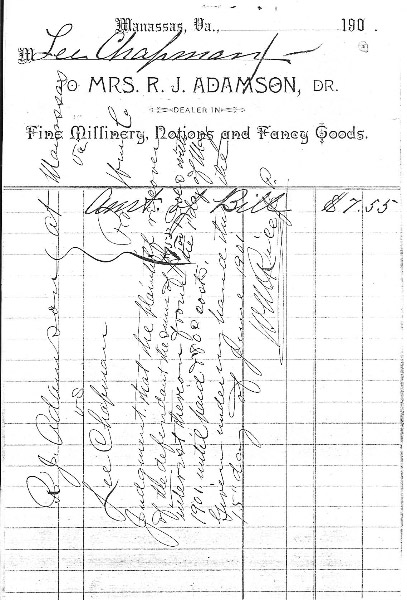 Manassas, Va., 190 .
M Lee Chapman
TO MRS. R. J. ADAMSON, DR.
DEALER IN
Fine Millinery, Notions and Fancy Goods.
Amt. Bill $7.55
R. J. Adamson at Manassas Va
vs
Lee Chapman
Judgment that the plaintiff recover
of the defendant the sum of $7.55 with
interest thereon from the of
1901 until paid & costs.
Given under my hand this the
15 day of June 1901